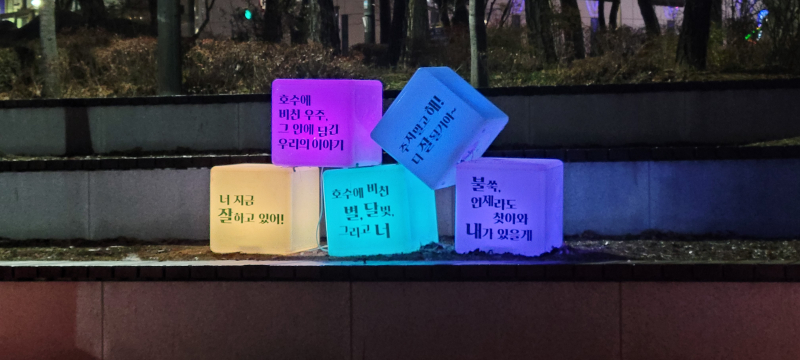 호수에
비친 우주,
그 안에 담긴
우리의 이야기
주저말고 해!
다 잘 될거야~
너 지금
잘하고 있어!
호수에 비친
별, 달빛,
그리고 너
불쑥,
언제라도
찾아와
내가 있을게